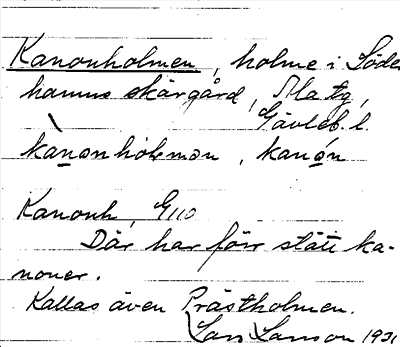 Kanonholmen, holme i Söder
hamns skärgård, Ala tg,
Gävleb. l.
kànonholmən, kanón
Kanonh, G110
Där har förr stått ka-
noner.
Kallas även Prästholmen.
Lars Larsson 1931